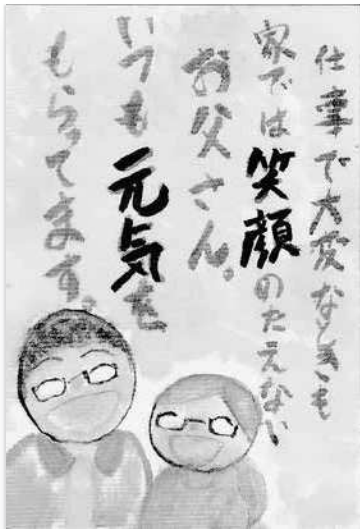 仕事で大変なときも
家では笑顔のたえない
お父さん。
いつも元気を
もらってます。